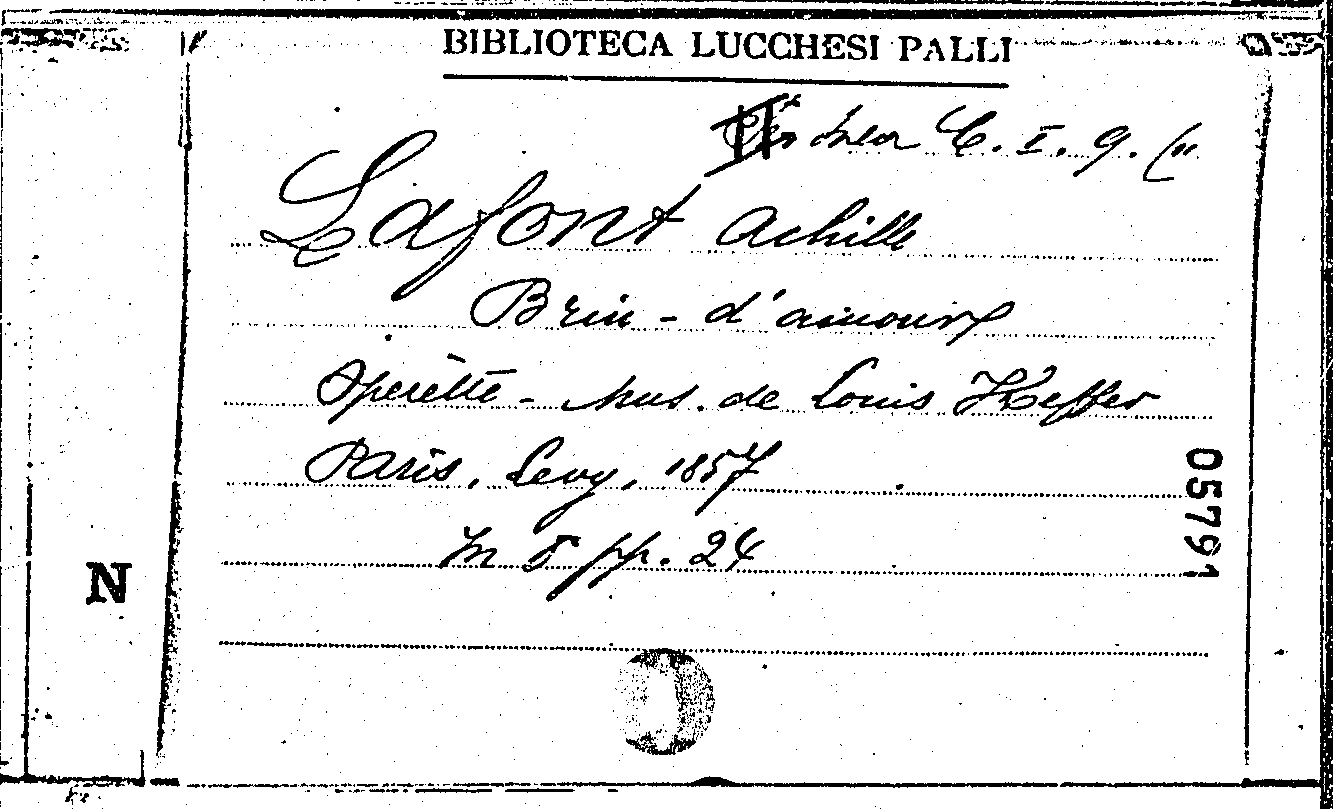 BIBLIOTECA LUCCHESI PALLI
C. I. 9. (11
Lafont Achille
Brin-d'amour
Opérètte - Mus. de Louis Heffer
Paris, Levy, 1857
In 8 pp. 24
05791
N